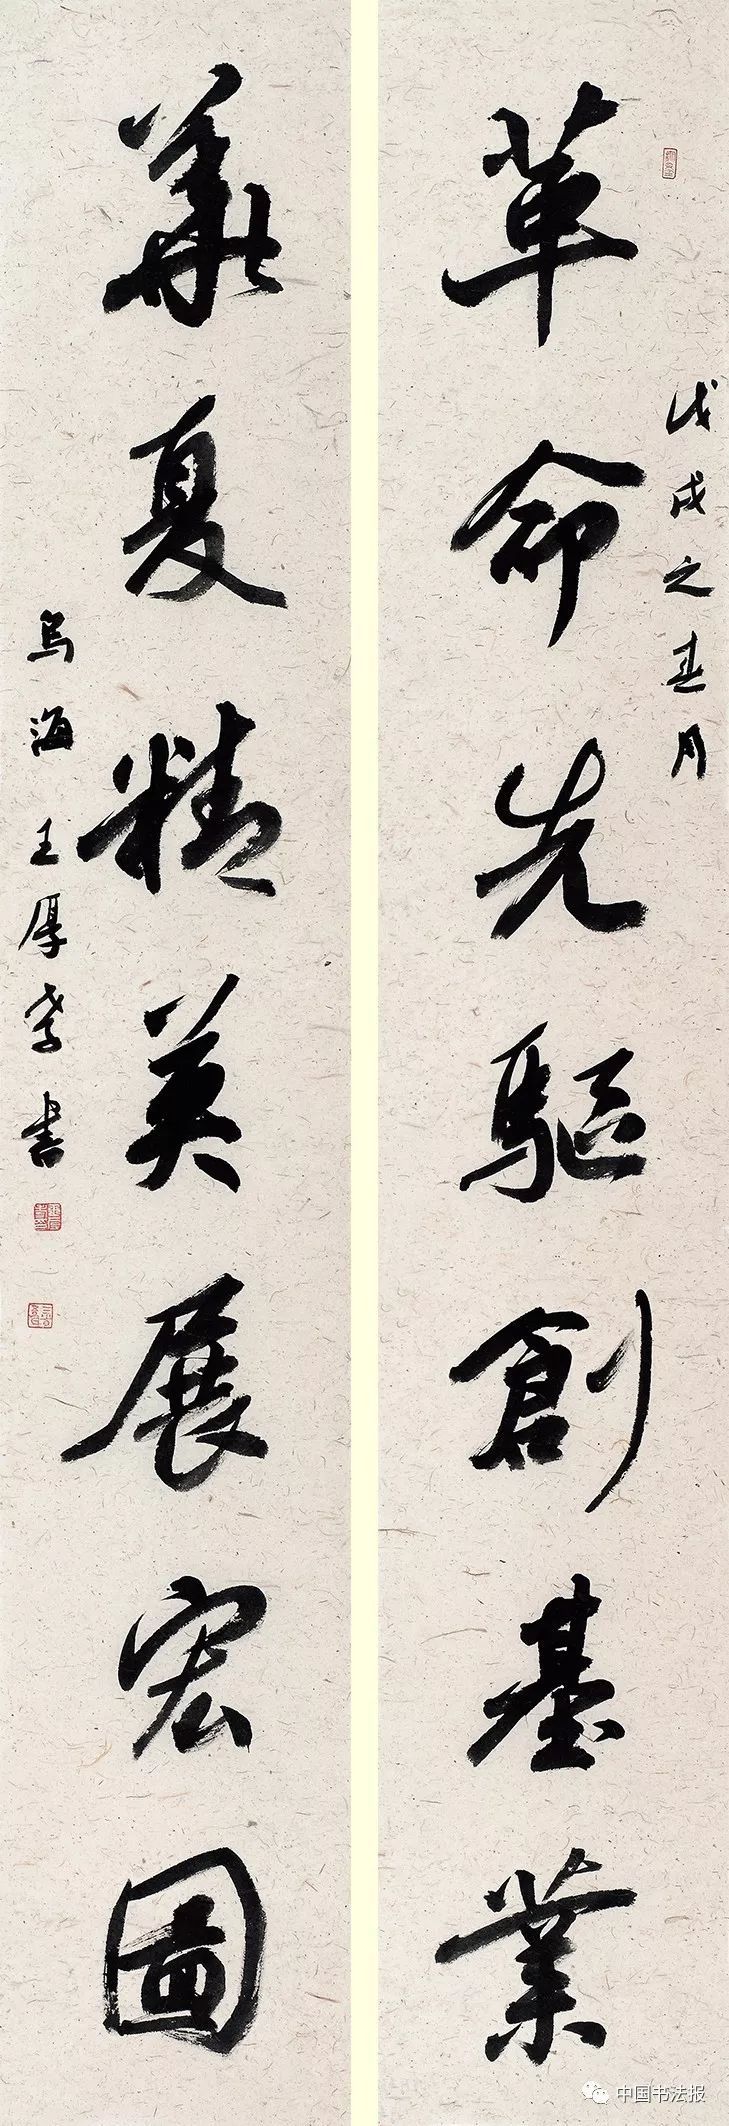 革命先驅創基業
戊戌之春月
華夏精英展宏圖
烏海王厚孝書
中国书法报